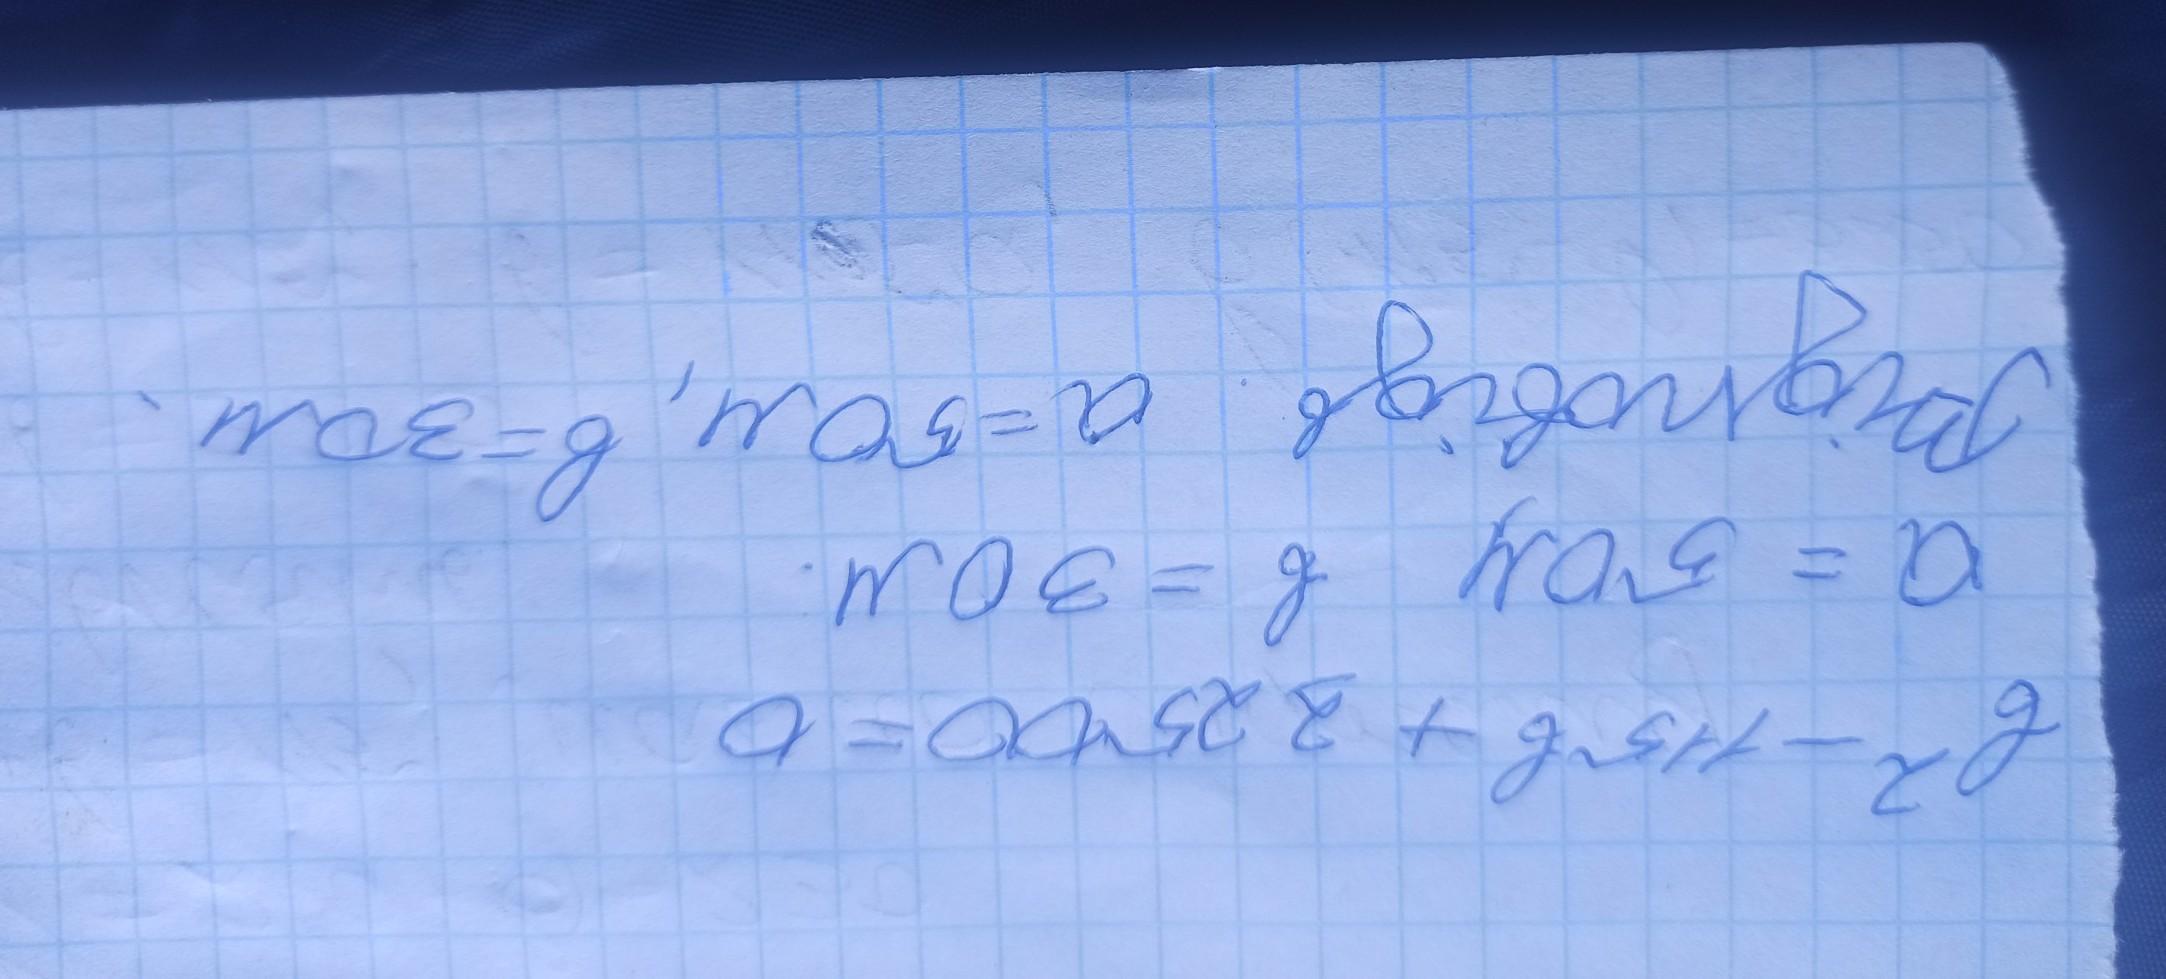 в² - 115в + 22500 = 0
а = 50м в = 30м.
Відповідь. а = 50м, в = 30м.